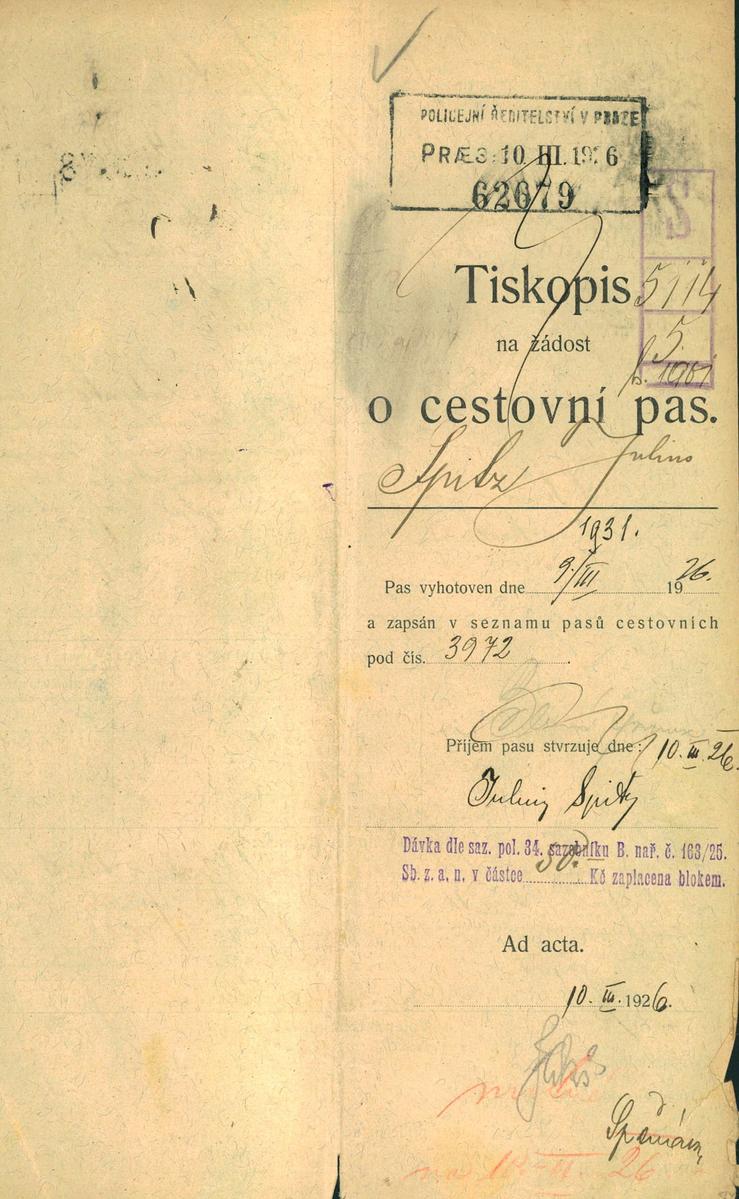 POLICEJNÍ ŘEDITELSTVÍ V PRAZE
PRÆS. 10 III. 1926
62679
Tiskopis
5114
na žádost
5.
o cestovní pas.
Spitz Julius
1931.
Pas vyhotoven dne 9/III 1926.
a zapsán v seznamu pasů cestovních
pod čís. 3972.
Příjem pasu stvrzuje dne: 10. III. 26.
Julius Spitz
Dávka dle saz. pol. 34. sazebníku B. nař. č. 163/25.
Sb. z. a. n. v částce 50. Kč zaplacena blokem.
Ad acta.
10. III. 1926.
26